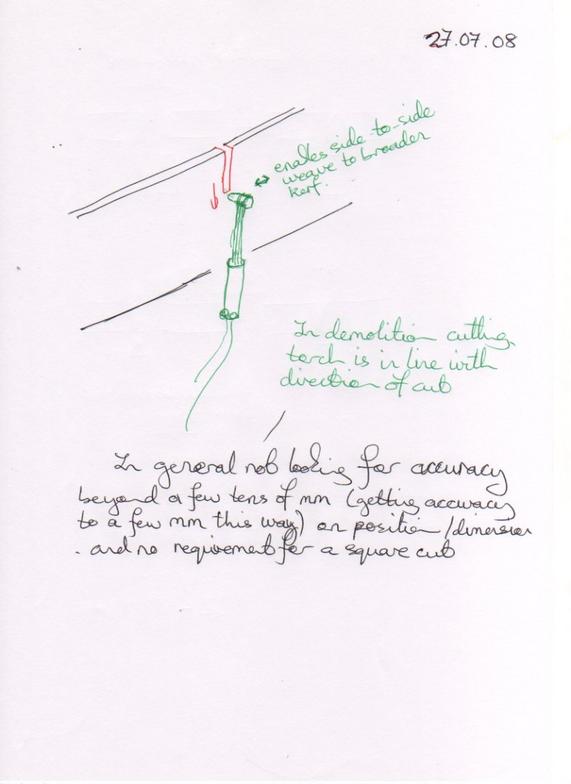 27.07.08
enables side-to-side
weave to broaden
kerf.
In demolition cutting,
torch is in line with
direction of cut
In general not looking for accuracy
beyond a few tens of mm (getting accuracy
to a few mm this way) on position/dimension
. and no requirement for a square cut